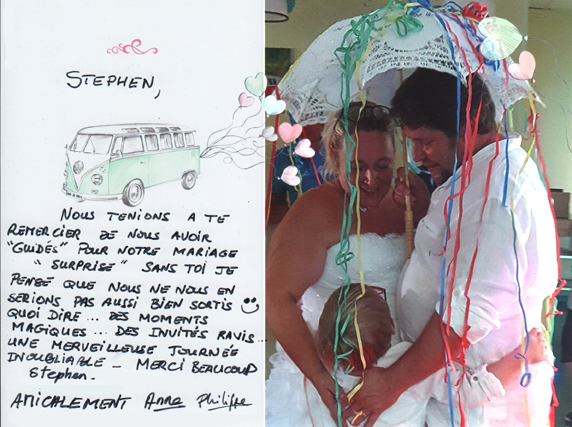 STEPHEN,
NOUS TENIONS A TE
REMERCIER DE NOUS AVOIR
"GUIDÉS" POUR NOTRE MARIAGE
"SURPRISE" SANS TOI JE
PENSE QUE NOUS NE NOUS EN
SERIONS PAS AUSSI BIEN SORTIS
QUOI DIRE... DES MOMENTS
MAGIQUES... DES INVITÉS RAVIS...
UNE MERVEILLEUSE JOURNÉE
INOUBLIABLE - MERCI BEAUCOUP
Stephen.
AMICALEMENT Anne Philippe